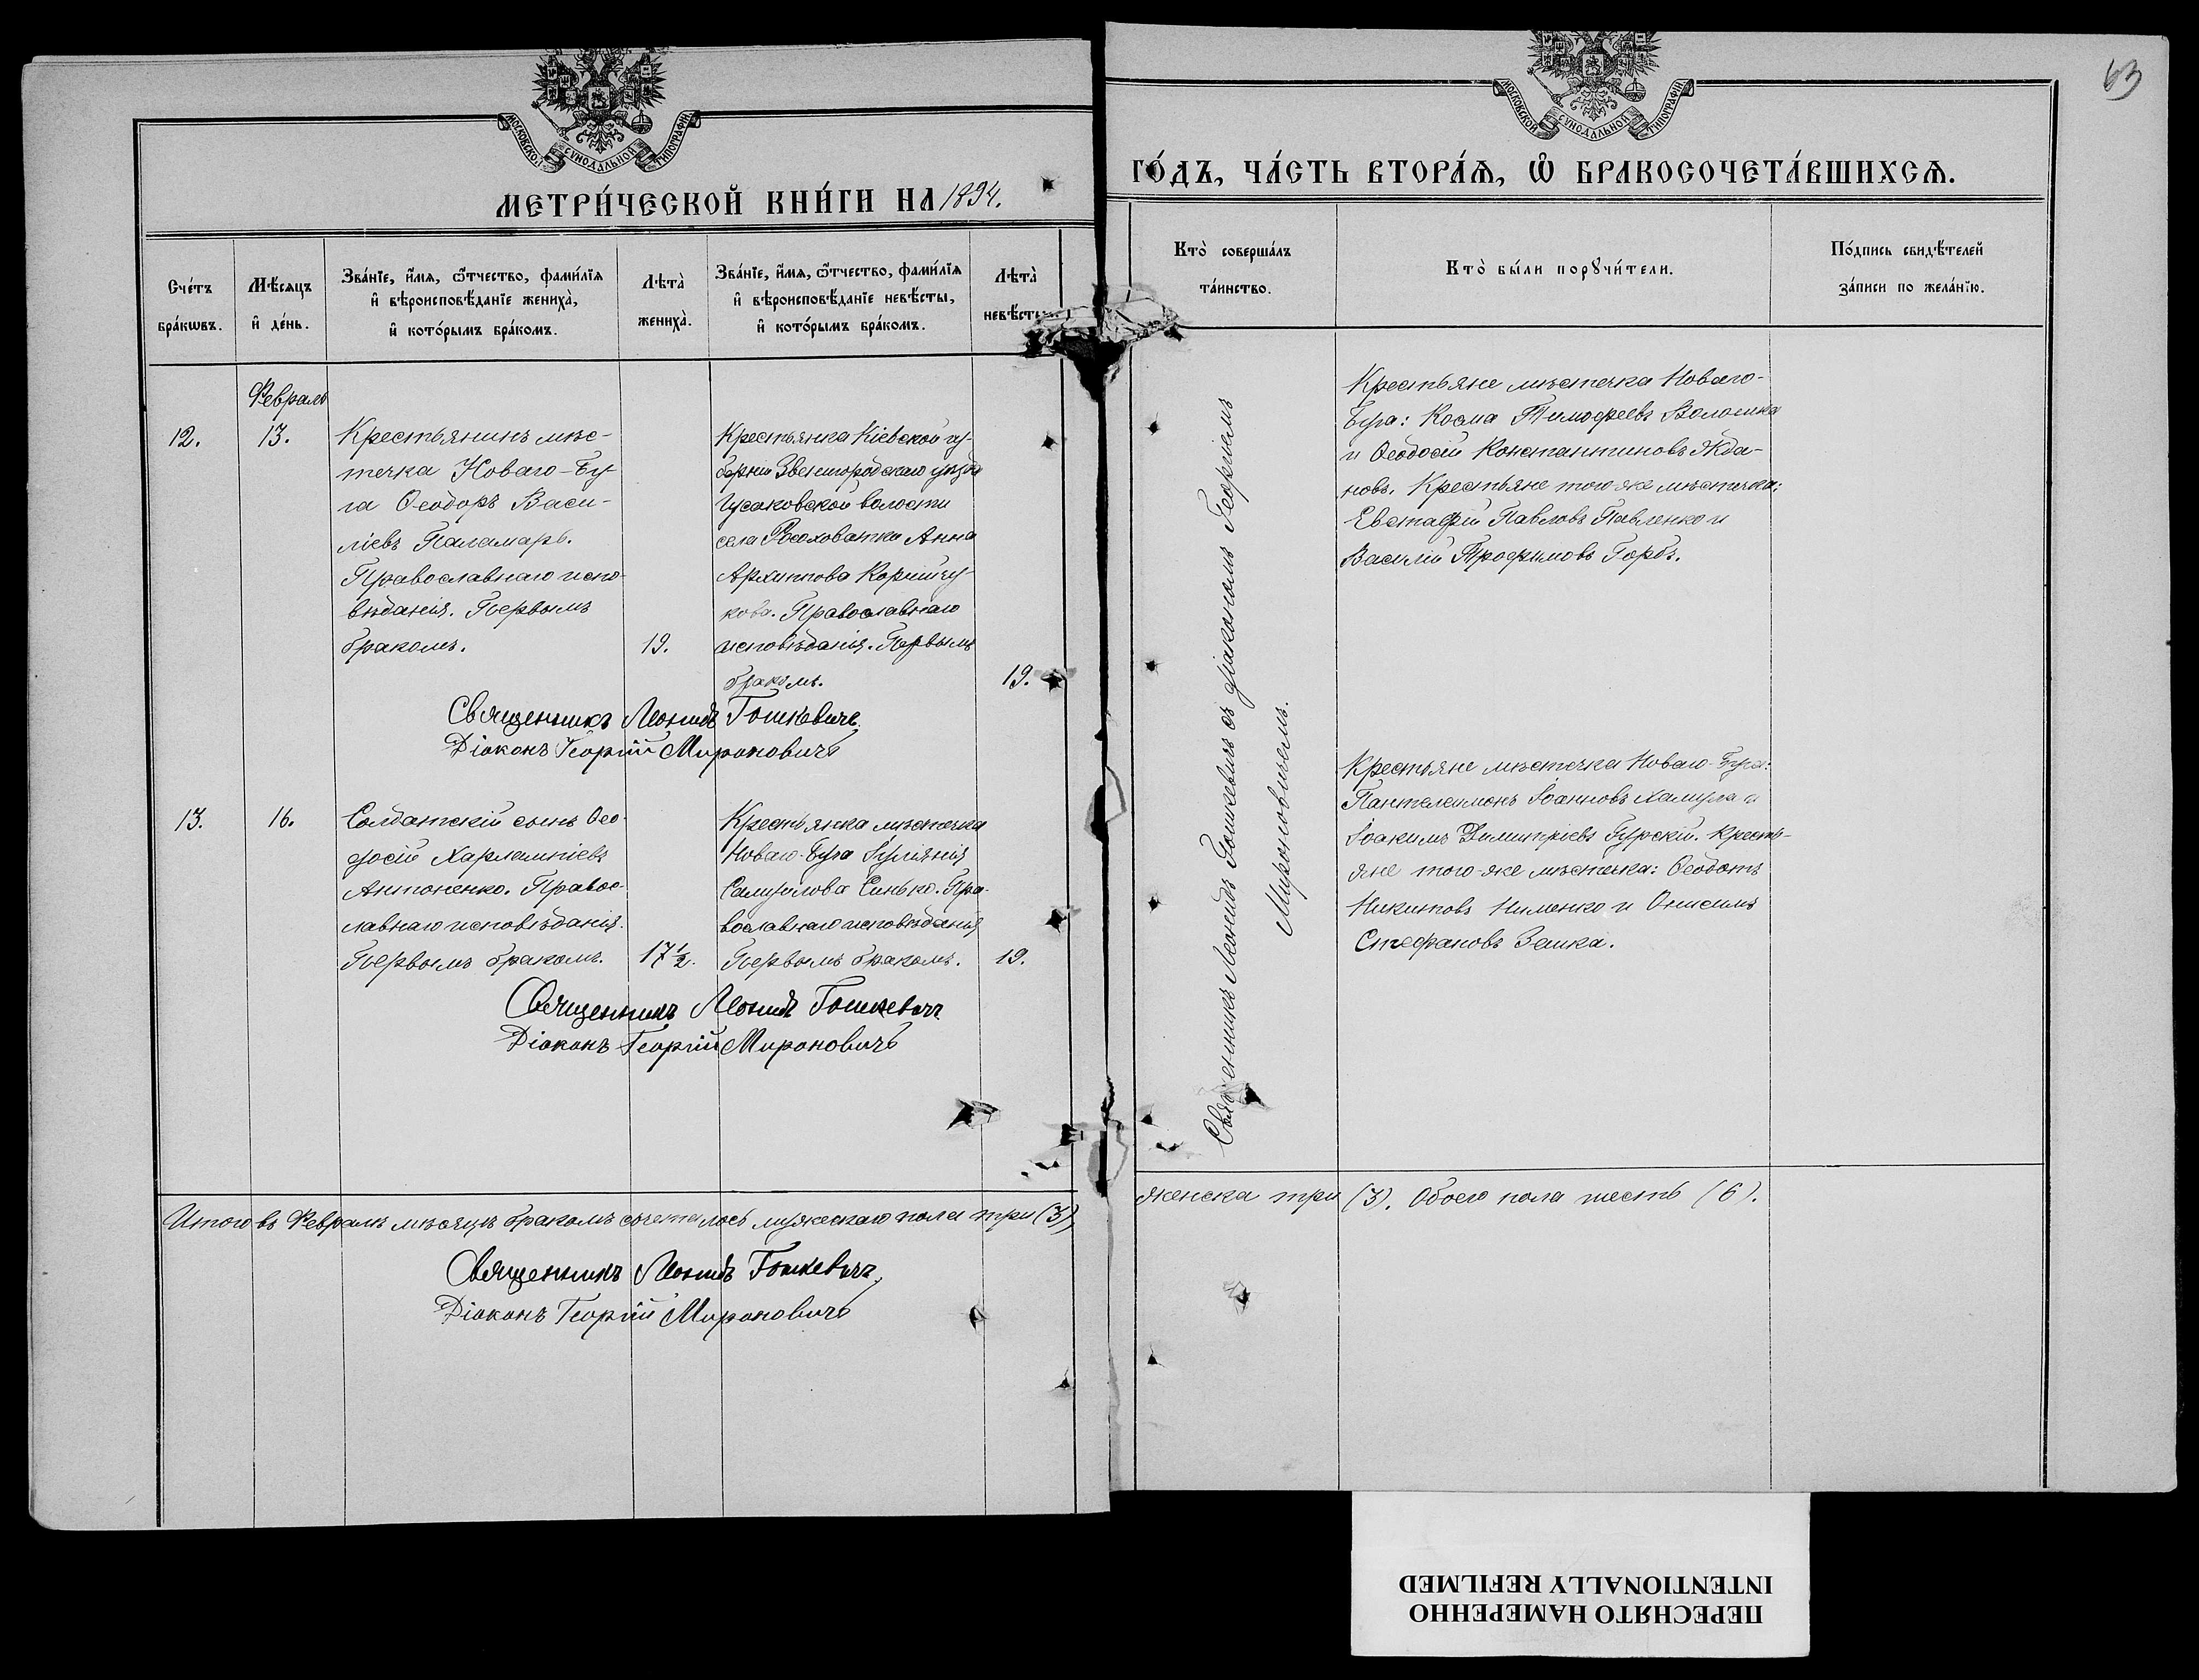 63
МОСКОВСКОЙ СѴНОДАЛЬНОЙ ТИПОГРАФІИ
МОСКОВСКОЙ СѴНОДАЛЬНОЙ ТИПОГРАФІИ
МЕТРИ́ЧЕСКОЙ КНИ́ГИ НА 1894.
ГО́ДЪ, ЧА́СТЬ ВТОРА́Ѧ, Ѽ БРАКОСОЧЕТА́ВШИХСѦ.
Сче́тъ
бра́кѡвъ.
Мѣ́сяцъ
и҆ де́нь.
Зва́нїе, и҆́мя, ѻ҆́тчество, фами́лїя
и҆ вѣроисповѣ́данїе жениха̀,
и҆ кото́рымъ бра́комъ.
Лѣта̀
жениха̀.
Зва́нїе, и҆́мя, ѻ҆́тчество, фами́лїя
и҆ вѣроисповѣ́данїе невѣ́сты,
и҆ кото́рымъ бра́комъ.
Лѣта̀
невѣ́сты.
Кто̀ соверша́лъ
та́инство.
Кто̀ бы́ли порꙋчи́тели.
По́дпись свидѣ́телей
за́писи по жела́нїю.
Февраль
12.
13.
Крестьянинъ мѣс-
течка Новаго-Бу-
га Ѳеодоръ Васи-
ліевъ Паламарь.
Православнаго испо-
вѣданія. Первымъ
бракомъ.
19.
Крестьянка Кіевской гу-
берніи Звенигородскаго уѣзда
Гусаковской волости
села Росоховатки Анна
Архипова Корнійчу-
кова. Православнаго
исповѣданія. Первымъ
бракомъ.
19.
Крестьяне мѣстечка Новаго-
Буга: Косма Тимофеевъ Волошка
и Ѳеодосій Константиновъ Жда-
новъ. Крестьяне того-же мѣстечка:
Евстафій Павловъ Павленко и
Василій Трофимовъ Горбъ.
Священникъ Леонидъ Гошкевичъ
Діаконъ Георгій Мироновичъ
13.
16.
Солдатскій сынъ Ѳео-
досій Харлампіевъ
Антоненко. Правос-
лавнаго исповѣданія.
Первымъ бракомъ.
17½.
Крестьянка мѣстечка
Новаго-Буга Іуліянія
Самуилова Синько. Пра-
вославнаго исповѣданія
Первымъ бракомъ.
19.
Крестьяне мѣстечка Новаго-Буга:
Пантелеимонъ Іоанновъ Хамула и
Іоакимъ Димитріевъ Гурскій. Кресть-
яне того-же мѣстечка: Ѳеодотъ
Никитовъ Нименко и Онисимъ
Стефановъ Заика.
Священникъ Леонидъ Гошкевичъ
Діаконъ Георгій Мироновичъ
Священникъ Леонидъ Гошкевичъ съ діакономъ Георгіемъ
Мироновичемъ.
Итого въ Февралѣ мѣсяцѣ бракомъ сочеталось мужескаго пола три (3)
женска три (3). Обоего пола шесть (6).
Священникъ Леонидъ Гошкевичъ
Діаконъ Георгій Мироновичъ
ПЕРЕСНЯТО НАМЕРЕННО
INTENTIONALLY REFILMED